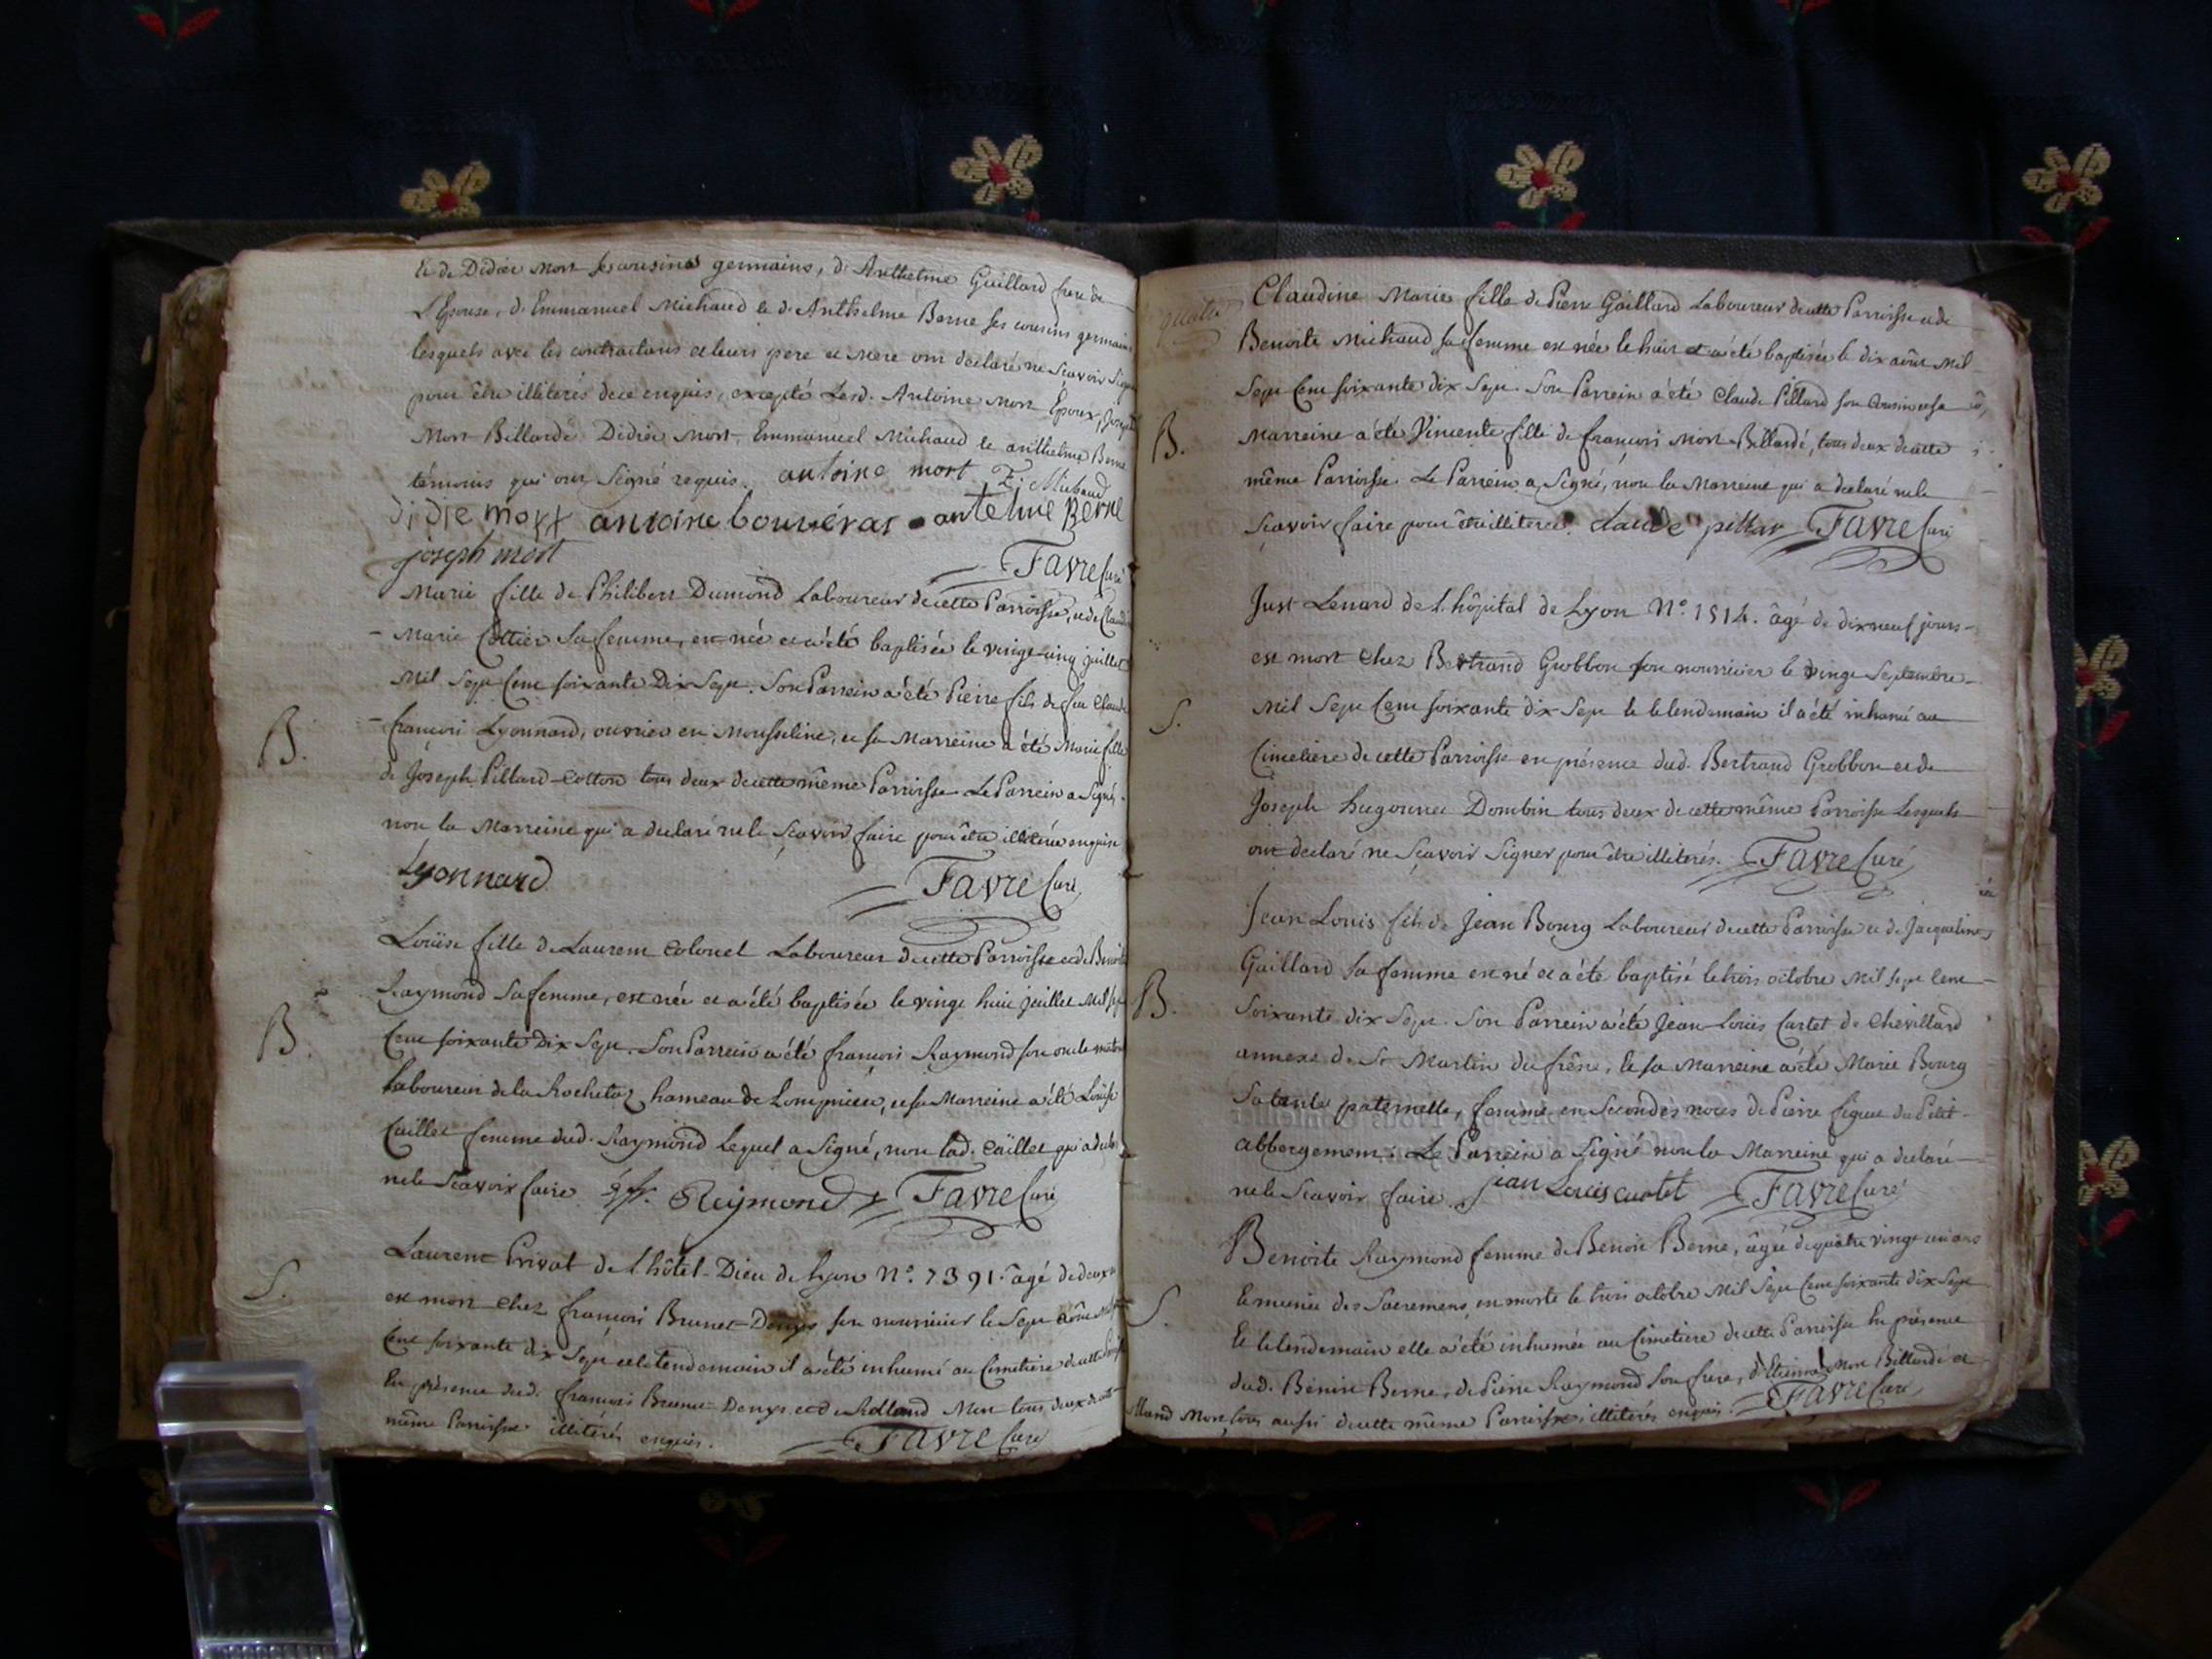 Et de Didier Mort ses cousins germains, d'Anthelme Gaillard frere de
L'Epouse, d'Emmanuel Michaud et d'Anthelme Berne ses cousins germains
lesquels avec les contractants et leurs pere et mere ont declaré ne Scavoir Signer
pour être illiterés de ce enquis, excepté Lesd. Antoine Mort Epoux, Joseph
Mort-Billardé Didier Mort, Emmanuel Michaud et anthelme Berne
témoins qui ont Signé requis. antoine mort E. Michaud
didie mort antoine bouvérat antelme Berne
joseph mort
Favre Curé
Marie fille de Philibert Dumond Laboureur de cette Parroisse, et de Claudine
Marie Cottier Sa femme, est née et a été baptisée le vingt-cinq juillet
Mil Sept Cent soixante Dix Sept. Son Parrein a été Pierre fils de feu Claude
B.
françois Lyonnard, ouvrier en Mousseline, et sa Marreine a été Marie fille
de Joseph Pillard-Cotton tous deux de cette même Parroisse Le Parrein a Signé,
non la Marreine qui a declaré ne le Scavoir faire pour être illiterée enquise
Lyonnard Favre Curé
Louise fille de Laurent Colonel Laboureur de cette Parroisse et de Benoite
Raymond Sa femme, est née et a été baptisée le vingt huit juillet Mil sept
B.
Cent soixante Dix Sept. Son Parrein a été françois Raymond son oncle
Laboureur de la Rochetaz hameau de et sa Marreine a été Louise
Caillet femme dud. Raymond lequel a Signé, non lad. Caillet qui a declaré
ne le Scavoir faire. Reymond Favre Curé
S.
Laurent Privat de L'hôtel-Dieu de Lyon N°. 7391. âgé de deux
est mort chez françois Brunet-Denys son nourricier le Sept août Mil sept
Cent soixante dix Sept et le lendemain il a été inhumé au Cimetiere de cette
En présence dud. françois Brunet-Denys et de Rolland Mort tous deux de cette
même Parroisse illiterés enquis. Favre Curé
quatre
Claudine Marie fille de Pierre Gaillard Laboureur de cette Parroisse et de
Benoite Michaud sa femme est née le huit et a été baptisée le dix août Mil
Sept Cent soixante dix Sept. Son Parrein a été Claude Pillard son Cousin et sa
B.
Marreine a été Vincente fille de françois Mort-Billardé, tous deux de cette
même Parroisse. Le Parrein a Signé, non la Marreine qui a declaré ne le
Scavoir faire pour être illiterée. claude pillar Favre Curé
Just Lenard de L'hôpital de Lyon N°. 1514. âgé de dix neuf jours
est mort chez Bertrand Grobbon son nourricier le vingt Septembre
S.
Mil Sept Cent soixante dix Sept et le lendemain il a été inhumé au
Cimetiere de cette Parroisse en présence dud. Bertrand Grobbon et de
Joseph hugonnet Dombin tous deux de cette même Parroisse Lesquels
ont declaré ne Scavoir Signer pour être illiterés. Favre Curé
Jean Louis fils de Jean Bourg Laboureur de cette Parroisse et de Jacqueline
Gaillard Sa femme est né et a été baptisé le trois octobre Mil Sept Cent
B.
Soixante dix Sept. Son Parrein a été Jean-Louis Cartet de Chevillard
annexe de St. Martin du frêne, et sa Marreine a été Marie Bourg
Sa tante paternelle, femme en Secondes noces de Pierre du Petit-
abbergement. Le Parrein a Signé non la Marreine qui a declaré
ne le Scavoir faire. jean Louis cartet Favre Curé
Benoite Raymond femme de Benoit Berne, âgée de quatre vingt un ans
S.
Et munie des Sacremens est morte le trois octobre Mil Sept Cent soixante dix Sept
Et le lendemain elle a été inhumée au Cimetiere de cette Parroisse En présence
dud. Benoit Berne, de Pierre Raymond Son frere, d'Etienne Mort Billardé et
Rolland Mort tous aussi de cette même Parroisse, illiterés enquis. Favre Curé